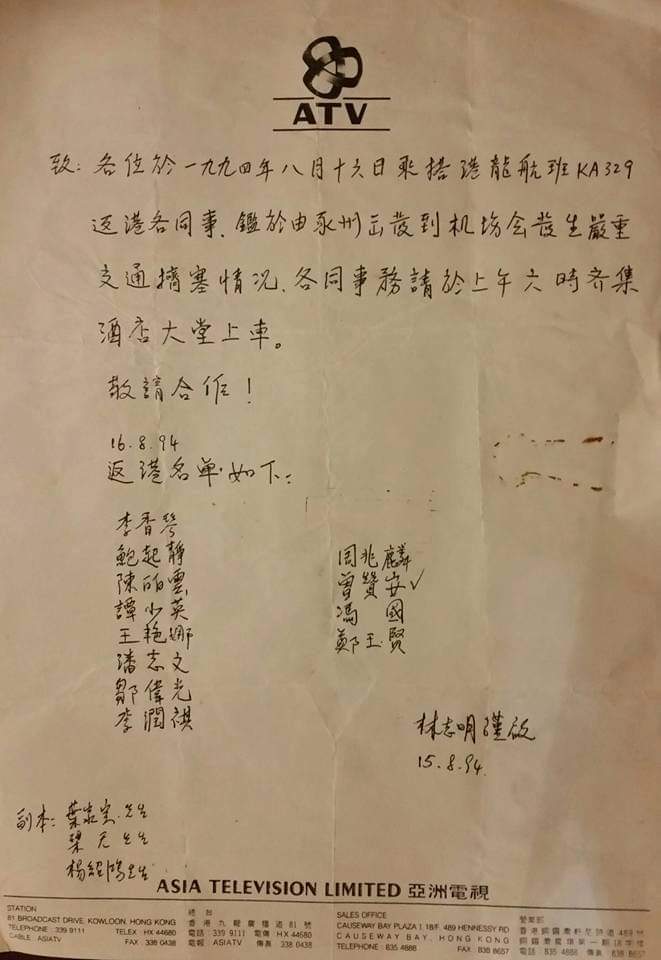 ATV
致: 各位於一九九四年八月十六日乘搭港龍航班KA329
返港各同事、鑑於由永州出發到机場会發生嚴重
交通擠塞情况、各同事務請於上午六時齐集
酒店大堂上車。
敬請合作！
16.8.94
返港名单如下：
李香琴
鮑起靜
陳皓雲
譚少英
王艳娜
潘志文
鄒偉光
李潤祺
周兆麟
曾贊安✓
馮 國
鄭玉賢
林志明謹啟
15.8.94.
副本：葉家宝先生
梁 元先生
楊紹鴻先生
ASIA TELEVISION LIMITED 亞洲電視
STATION
81 BROADCAST DRIVE, KOWLOON, HONG KONG
TELEPHONE : 339 9111 TELEX HX 44680
CABLE : ASIATV FAX : 338 0438
總台
香港九龍廣播道81號
電話：339 9111 電傳 HX 44680
電報：ASIATV 傳真 338 0438
SALES OFFICE
CAUSEWAY BAY PLAZA I, 18/F, 489 HENNESSY RD
CAUSEWAY BAY, HONG KONG
TELEPHONE : 835 4888 FAX 838 8657
營業部
香港銅鑼灣軒尼詩道489號
銅鑼灣廣場第一期18字樓
電話：835 4888 傳真 838 8657